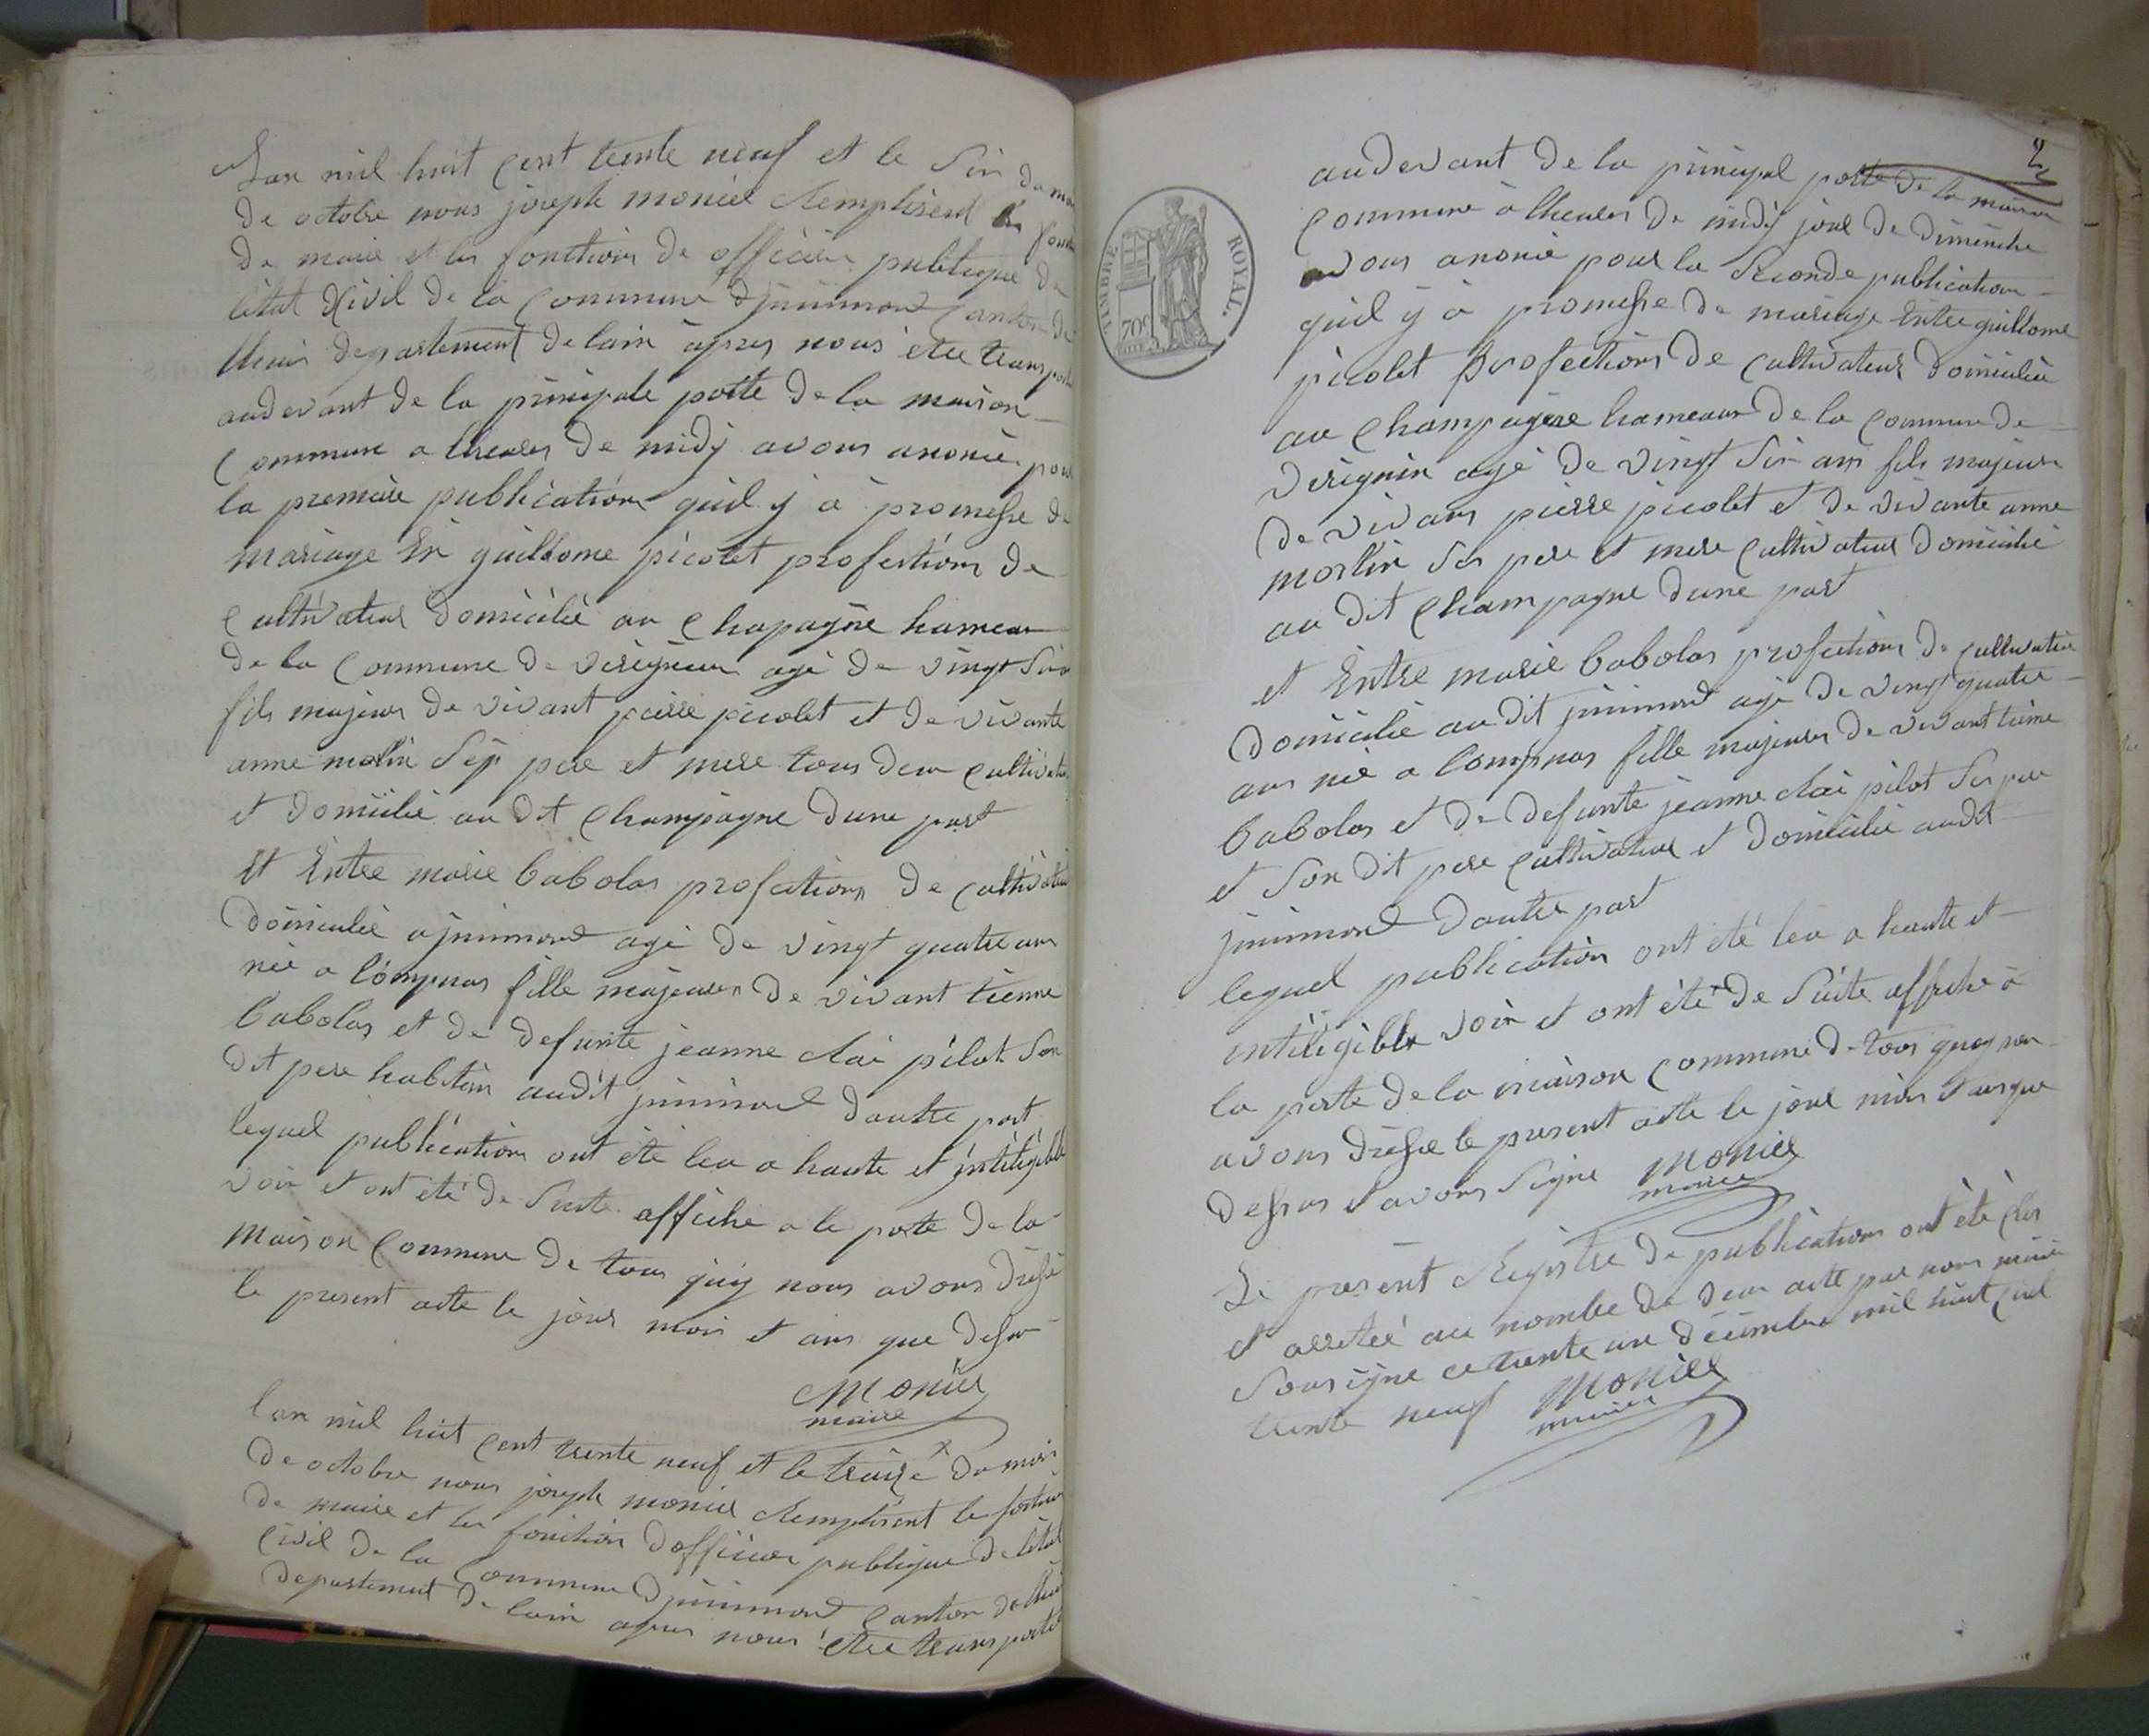 Lan mil huit cent trente neuf et le six du mois
de octobre nous joseph monier Remplisent les
de maire et les fonctions de officier publique de
létat Civil de la Commune djnimond Canton de
lhuis departement de lain apres nous etre transporté
audevant de la principale porte de la maison
Commune a lheures de midy avons anoncé pour
la premiere publication quil y à promesse de
mariage En guillome picolet profections de
Cultivateur domicilié au Chapagne hameau
de la Commune de virignieu agé de vingt six
fils majeur de vivant pierre picolet et de vivante
anne mollin Ses pere et mere tous deux cultivateur
et domicilié au dit Champagne dune part
Et Entre marie babolas profections de cultivateur
domicilié a jnimond agé de vingt quatre ans
née a lompnas fille majeures de vivant tienne
babolas et de defunte jeanne pilot Son
dit pere habitan audit jnimond dautre part
lequel publications ont été leu a haute et intéligible
voix et ont été de Suite affiche a la porte de la
maison Commune de tous quoy nous avons dressé
le present acte le jour mois et ans que dessus
Monier
maire
lan mil huit cent trente neuf et le treize du mois
de octobre nous joseph monier Remplisent le fonction
de maire et les fonction dofficier publique de létat
Civil de la Commune djnimond Canton de lhuis
departement de lain apres nous être transporté
2
audevant de la principal porte de la maison
Commune à lheures de midy jour de dimenche
avons anoncé pour la Seconde publication
quil y à promesse de mariage Entre guillome
picolet profections de Cultivateur domicilié
au Champagne hameaux de la Commune de
virignin agé de vingt six ans fils majeur
de vivans pierre picolet et de vivante anne
mollin Ses pere et mere cultivateur domicilié
au dit Champagne dune part
et Entre marie babolas profections de cultivatrice
domicilié au dit jnimond agé de vingt quatre
ans née a lompnas fille majeures de vivant tienne
babolas et de defunte jeanne pilot Ses pere
et Son dit pere cultivateur et domicilié audit
jnimond dautre part
lequel publication ont été leu a haute et
intéligible voix et ont été de Suite affiche à
la porte de la maison Commune de tous quoy nous
avons dressé le present acte le jour mois et ans que
dessus et avons Signe Monier
maire
Le present Registre de publications ont été clos
et arretée au nombre de deux acte par nous maire
Sousigne ce trente un décembre mil huit cent
trente neuf Monier
maire
TIMBRE ROYAL.
70c